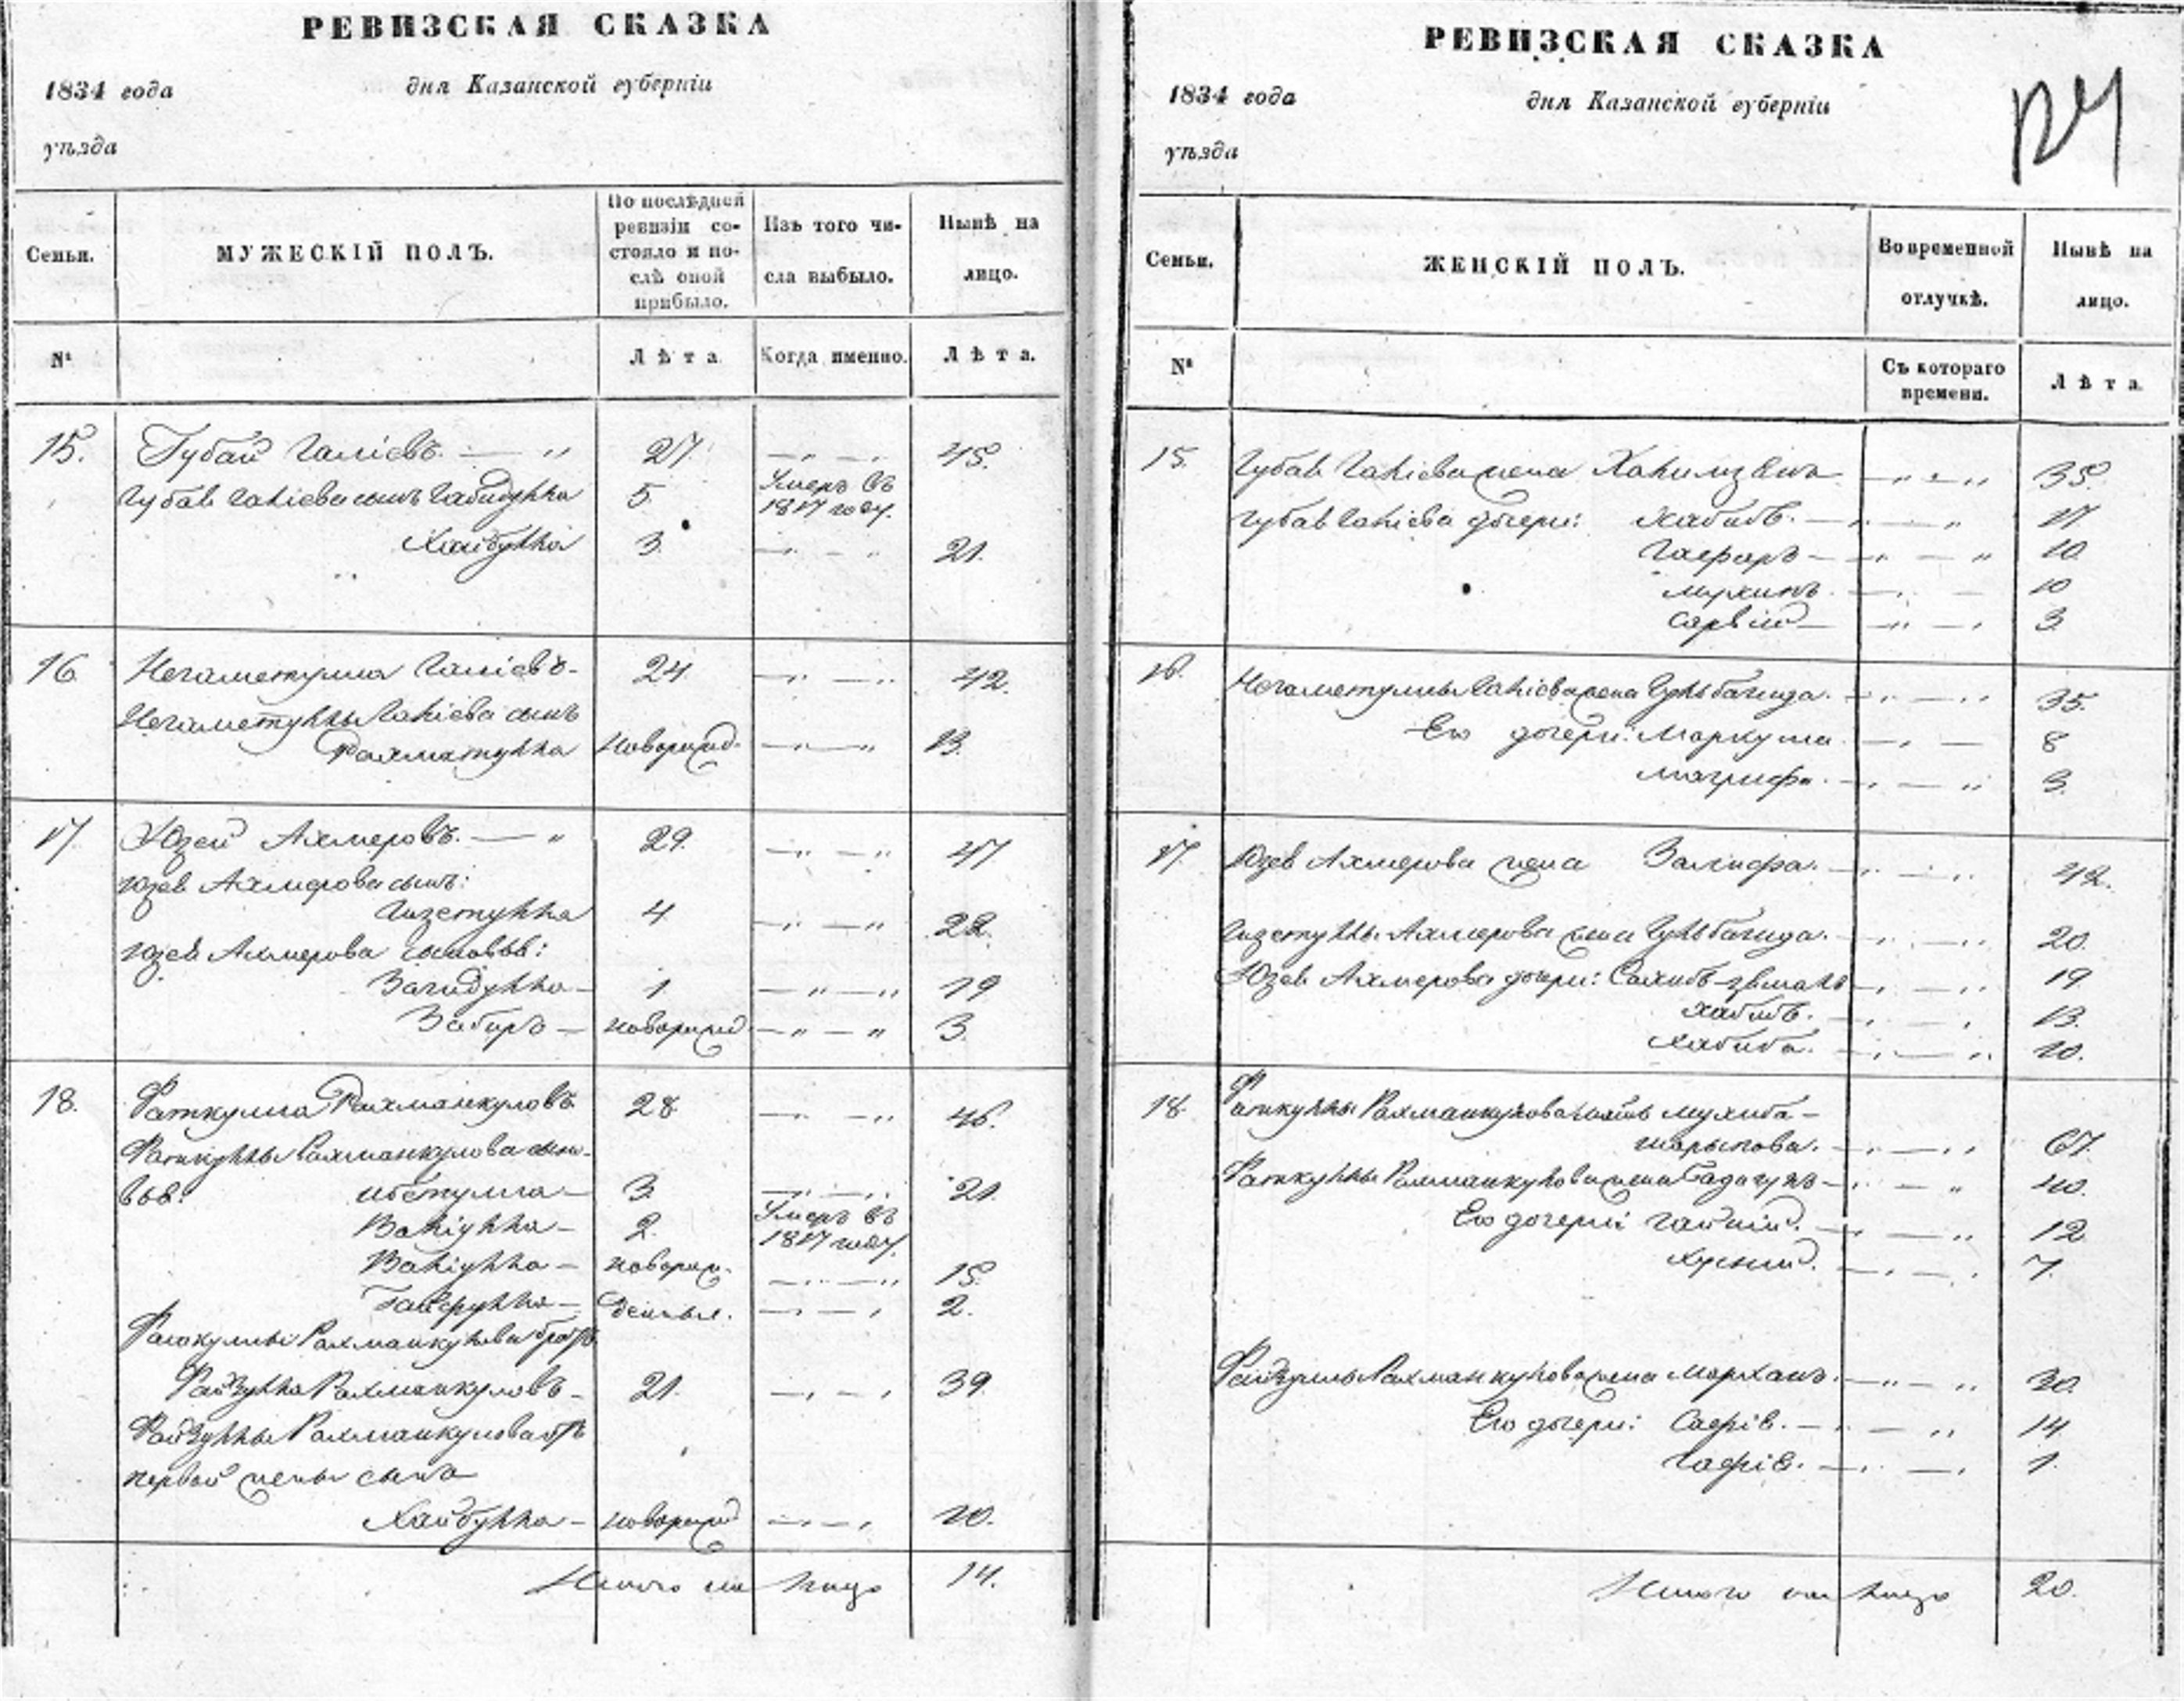 РЕВИЗСКАЯ СКАЗКА
1834 года дня Казанской губерніи
уѣзда
Семьи. МУЖЕСКІЙ ПОЛЪ. По послѣдней ревизіи состояло и послѣ оной прибыло. Изъ того числа выбыло. Нынѣ на лицо.
№ Лѣта Когда именно. Лѣта.
15. Губай Галіевъ. — „ 27. 45.
Губая Галіева сынъ Габидулла 5. Умеръ въ 1817 году.
Хайбулла 3. 21.
16 Негаметулла Галіевъ. 24. 42.
Негаметуллы Галіева сынъ
Рахматулла новорожд. 13.
17 Юзей Ахмеровъ. — „ 29. 47
Юзея Ахмерова сынъ:
Гизетулла 4 22.
Юзея Ахмерова сыновья:
Загидулла — 1. 19
Забиръ — новорожд 3.
18. Фаткулла Рахманкуловъ 28. 46.
Фаткуллы Рахманкулова сыно-
вья: — 3. 21.
Валіулла — 2. Умеръ въ 1817 году.
Валіулла — новорож. 15.
— 2.
Фаткуллы Рахманкулова братъ
Файзулла Рахманкуловъ — 21. 39.
Файзуллы Рахманкулова отъ
первой жены сынъ
Хайбулла — новорожд 10.
Итого на лицо 14.
РЕВИЗСКАЯ СКАЗКА
1834 года дня Казанской губерніи
уѣзда
124
Семьи. ЖЕНСКІЙ ПОЛЪ. Во временной отлучкѣ. Нынѣ на лицо.
№ Съ котораго времени. Лѣта
15. Губая Галіева жена 35.
Губая Галіева дочери: Хабибъ. — 17
Гафаръ — 10.
10
3.
16. Негаметуллы Галіева жена Гульбагида. 35.
Его дочери: 8
Магрифа. 3.
17. Юзея Ахмерова жена Залифа. 42.
Гизетуллы Ахмерова жена Гульбагида. 20.
Юзея Ахмерова дочери: 19
Хабибъ. 13.
Хабиба. 10.
18. Фаткуллы Рахманкулова мать Мухиба —
шарыпова. 67.
Фаткуллы Рахманкулова жена — 40.
Его дочери: 12
7.
Файзуллы Рахманкулова жена Марханъ. 30.
Его дочери: Сафія. — 14
Гафія. — 1.
Итого на лицо 20.